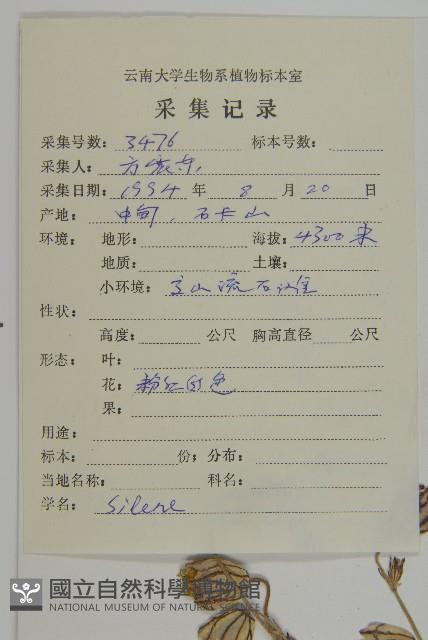 云南大学生物系植物标本室
采集记录
采集号数: 3476 标本号数:
采集人: 方震东
采集日期: 1994 年 8 月 20 日
产地: 中甸, 石卡山
环境: 地形: 海拔: 4300 米
地质: 土壤:
小环境: 高山流石滩
性状:
高度: 公尺 胸高直径 公尺
形态: 叶:
花: 粉红色
果:
用途:
标本: 份; 分布:
当地名称: 科名:
学名: Silene
國立自然科學博物館
NATIONAL MUSEUM OF NATURAL SCIENCE